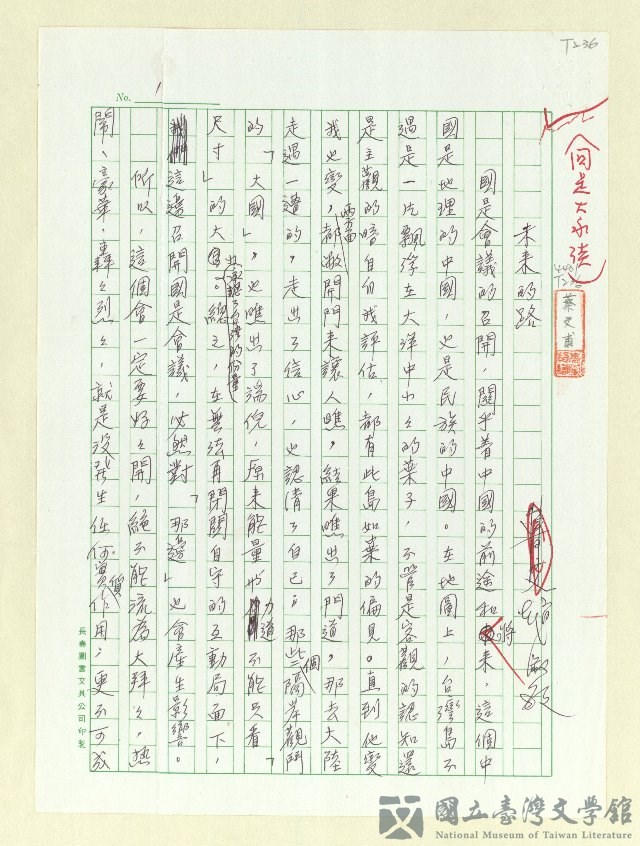 T236
No. 1
向是大永遠
440
T236
蔡文甫
未來的路
趙淑敏
國是會議的召開，關乎着中國的前途和將來，這個中
國是地理的中國，也是民族的中國。在地圖上，台灣島不
過是一片飄浮在大洋中小小的葉子，不管是客觀的認知還
是主觀的暗自自我評估，都有此島如葉的偏見。直到他變
我也變，兩方面都敞開門來讓人瞧，結果瞧出了門道，那去大陸
走過一遭的，走出了信心，也認清了自己；那些個隔岸觀鬥
的「大國」，也瞧出了端倪，原來能量與力道不能只看「
尺寸」的大，也承認了台灣的份量。總之，在無法再閉關自守的互動局面下，
這邊召開國是會議，必然對「那邊」也會產生影響。
所以，這個會一定要好好開，絕不能流為大拜拜，熱
鬧、豪華，轟轟烈烈，就是沒發生任何實質作用；更不可成
長春圖書文具公司印製
國立臺灣文學館
National Museum of Taiwan Literature